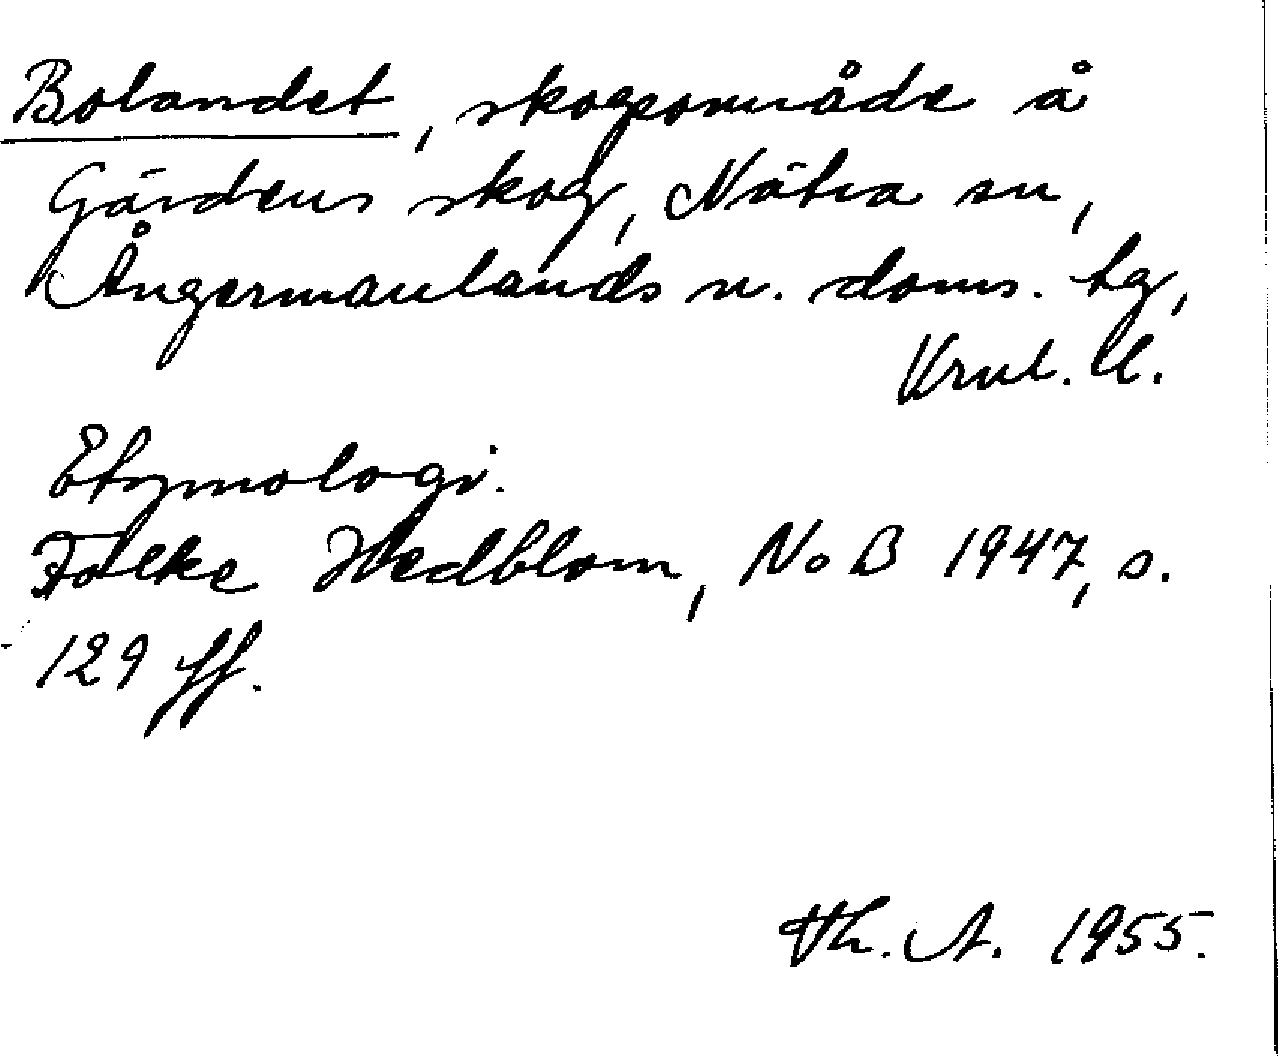 Bolandet, skogsområde å
Gärdens skog, Nätra sn,
Ångermanlands n. doms. tg,
Vrnl. l.
Etymologi.
Folke Hedblom, NoB 1947, s.
129 ff.
Th. A. 1955.